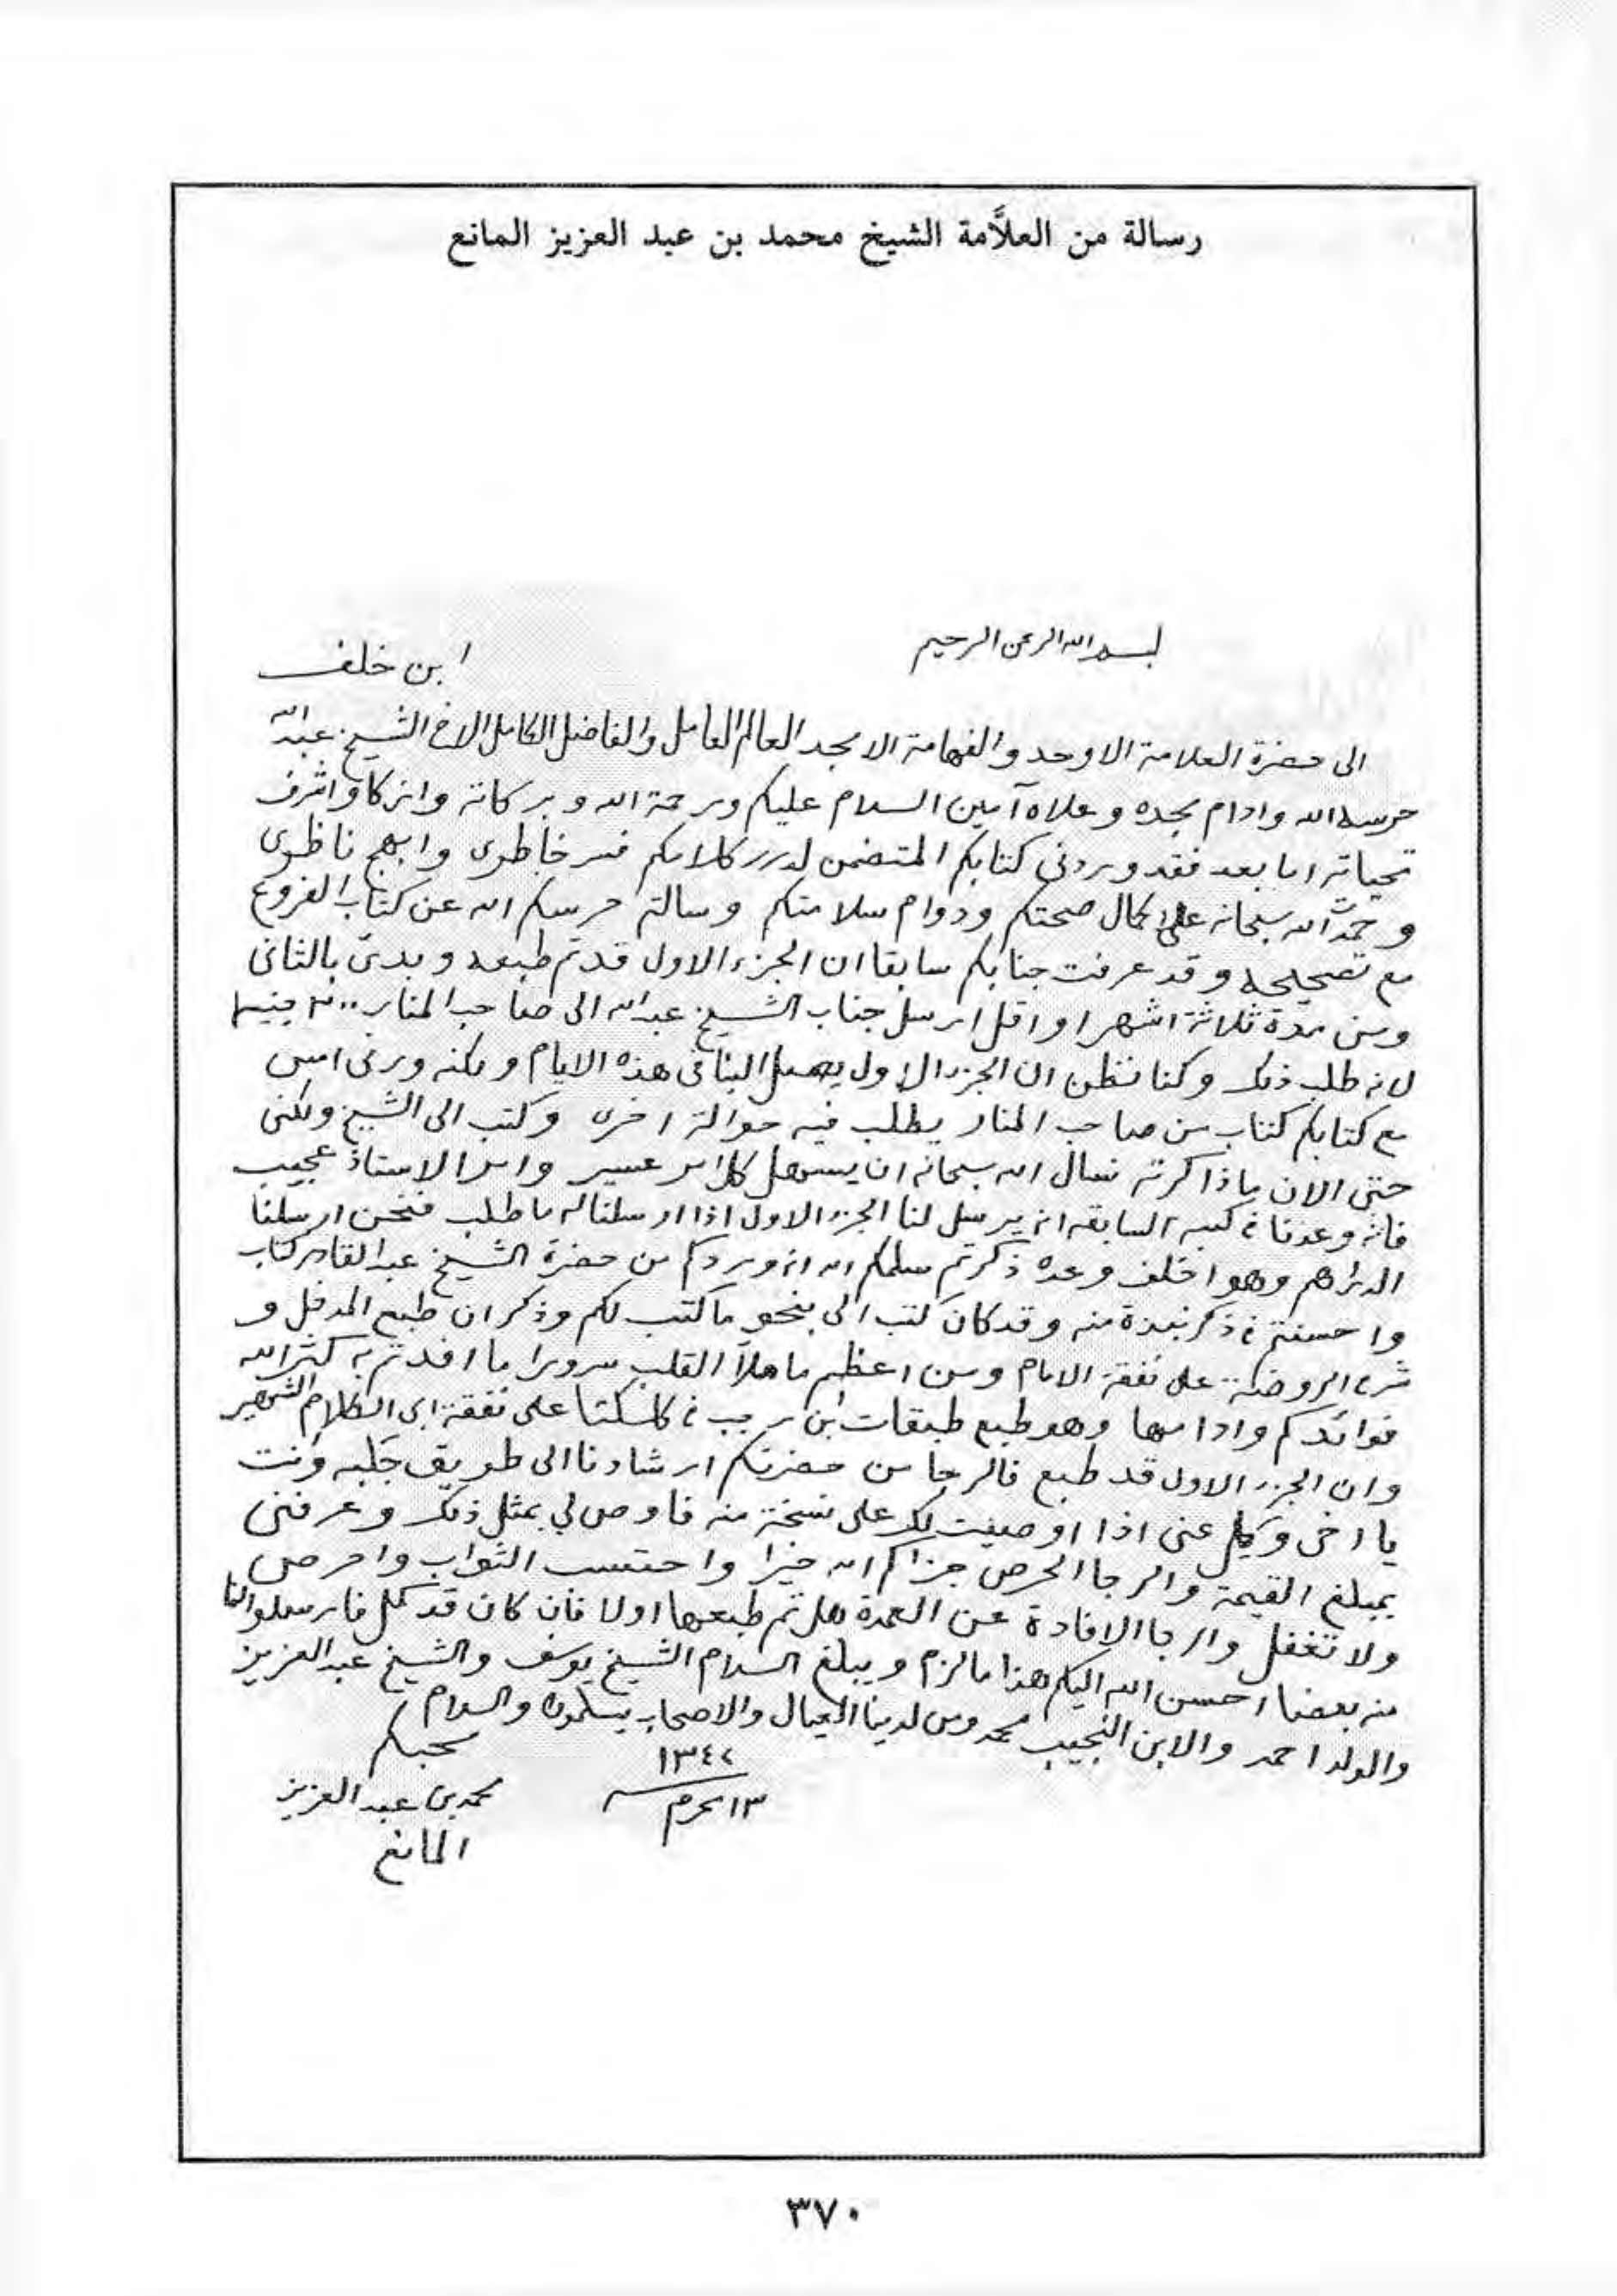 رسالة من العلاَّمة الشيخ محمد بن عبد العزيز المانع
بسم الله الرحمن الرحيم
ابن خلف
الى حضرة العلامة الاوحد والفهامة الامجد العالم العامل والفاضل الكامل الاخ الشيخ عبدالله
حرسه الله وادام مجده وعلاه آمين السلام عليكم ورحمة الله وبركاته وازكا واشرف
تحياته اما بعد فقد وردني كتابكم المتضمن لدرر كلامكم فسر خاطرى وابهج ناظرى
وحمدت الله سبحانه على كمال صحتكم ودوام سلامتكم وسالتم حرسكم الله عن كتاب الفروع
مع تصحيحه وقد عرفت جنابكم سابقا ان الجزء الاول قد تم طبعه وبدئ بالثانى
ومن مدة ثلاثة اشهر او اقل ارسل جناب الشيخ عبدالله الى صاحب المنار ٣٠٠ جنيها
لانه طلب ذلك وكنا نظن ان الجزء الاول يصل الينا فى هذه الايام ولكنه ورنى امس
مع كتابكم كتاب من صاحب المنار يطلب فيه حوالة اخرى وكتب الى الشيخ ولكنى
حتى الان ماذاكرته نسال الله سبحانه ان يسهل كل امر عسير وامر الاستاذ عجيب
فانه وعدنا فى كتبه السابقه انه يرسل لنا الجزء الاول اذا ارسلنا له ما طلب فنحن ارسلنا
الدراهم وهو اخلف وعده ذكرتم سلمكم الله انه وردكم من حضرة الشيخ عبدالقادر كتاب
واحسنتم فى ذكر نبذة منه وقد كان كتب الى بنحو ما كتب لكم وذكر ان طبع المدخل و
شرح الروضة على نفقة الامام ومن اعظم ماملأ القلب سرورا ما افدتم به كثر الله
فوائدكم وادامها وهو طبع طبقات ابن رجب فى كلكتا على نفقة ابى الكلام الشهير
وان الجزء الاول قد طبع فالرجا من حضرتكم ارشادنا الى طريق جلبه وانت
يا اخى وكيل عنى اذا اوصيت لك على نسخة منه فاوص لي بمثل ذلك وعرفنى
بمبلغ القيمة والرجا الحرص جزاكم الله خيرا واحتسب الثواب واحرص
ولا تغفل والرجا الافادة عن العمدة هل تم طبعها اولا فان كان قد كمل فارسلوا لنا
منه بعضا احسن الله اليكم هذا مالزم ويبلغ السلام الشيخ يوسف والشيخ عبدالعزيز
والولد احمد والابن النجيب محمد ومن لدينا العيال والاصحاب يسلمون والسلام
محبكم
محمد بن عبدالعزيز
المانع
١٣٤٢
١٣ محرم
٣٧٠